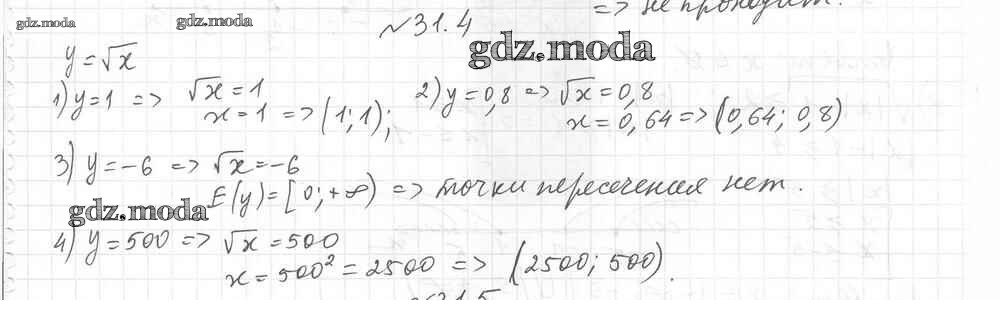 => не проходит.
gdz.moda gdz.moda №31.4
gdz.moda
y=√x
1) y=1 => √x=1 2) y=0,8 => √x=0,8
x=1 => (1;1); x=0,64 => (0,64; 0,8)
3) y=-6 => √x=-6
E(y)=[0;+∞) => точки пересечения нет.
gdz.moda
4) y=500 => √x=500
x=500²=2500 => (2500; 500).